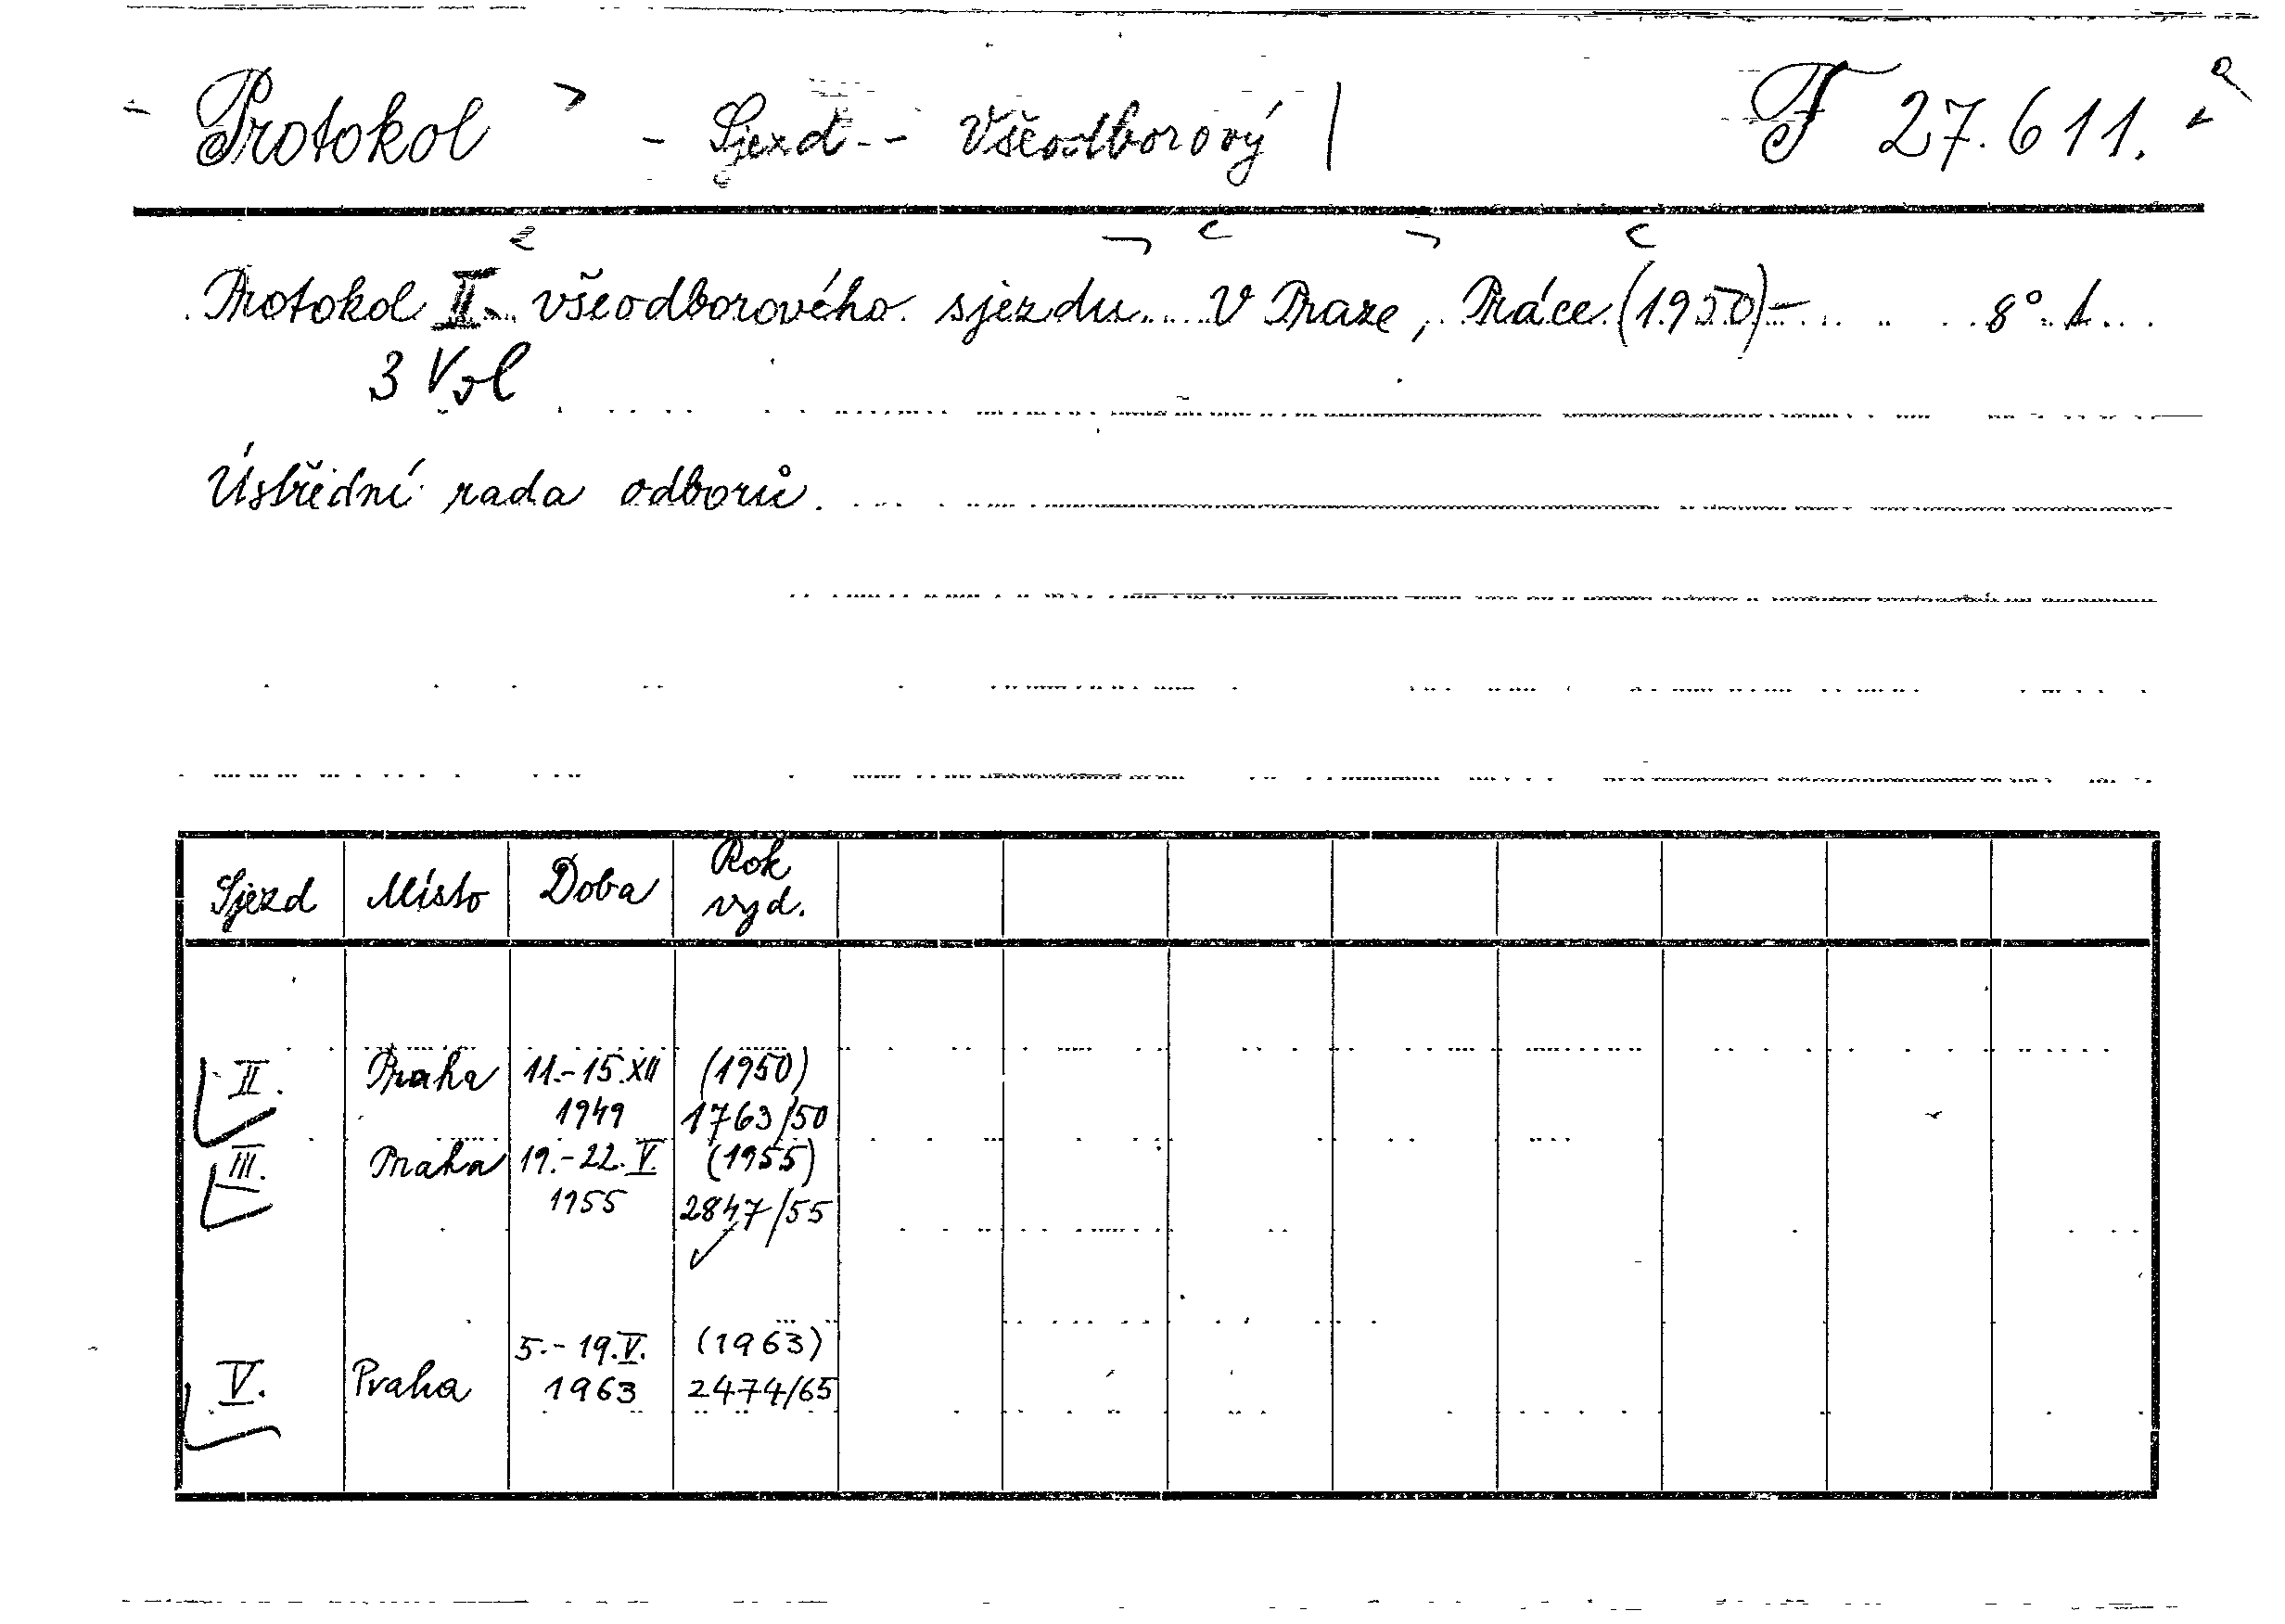 Protokol - Sjezd - Všeodborový F 27.611.
Protokol II. všeodborového sjezdu. V Praze, Práce (1950)- 8°.
3 Vol
Ústřední rada odborů.
Sjezd Místo Doba Rok vyd.
II. Praha 11.-15.XII 1949 (1950) 1763/50
III. Praha 19.-22.V. 1955 (1955) 2847/55
V. Praha 5.-19.V. 1963 (1963) 2474/65